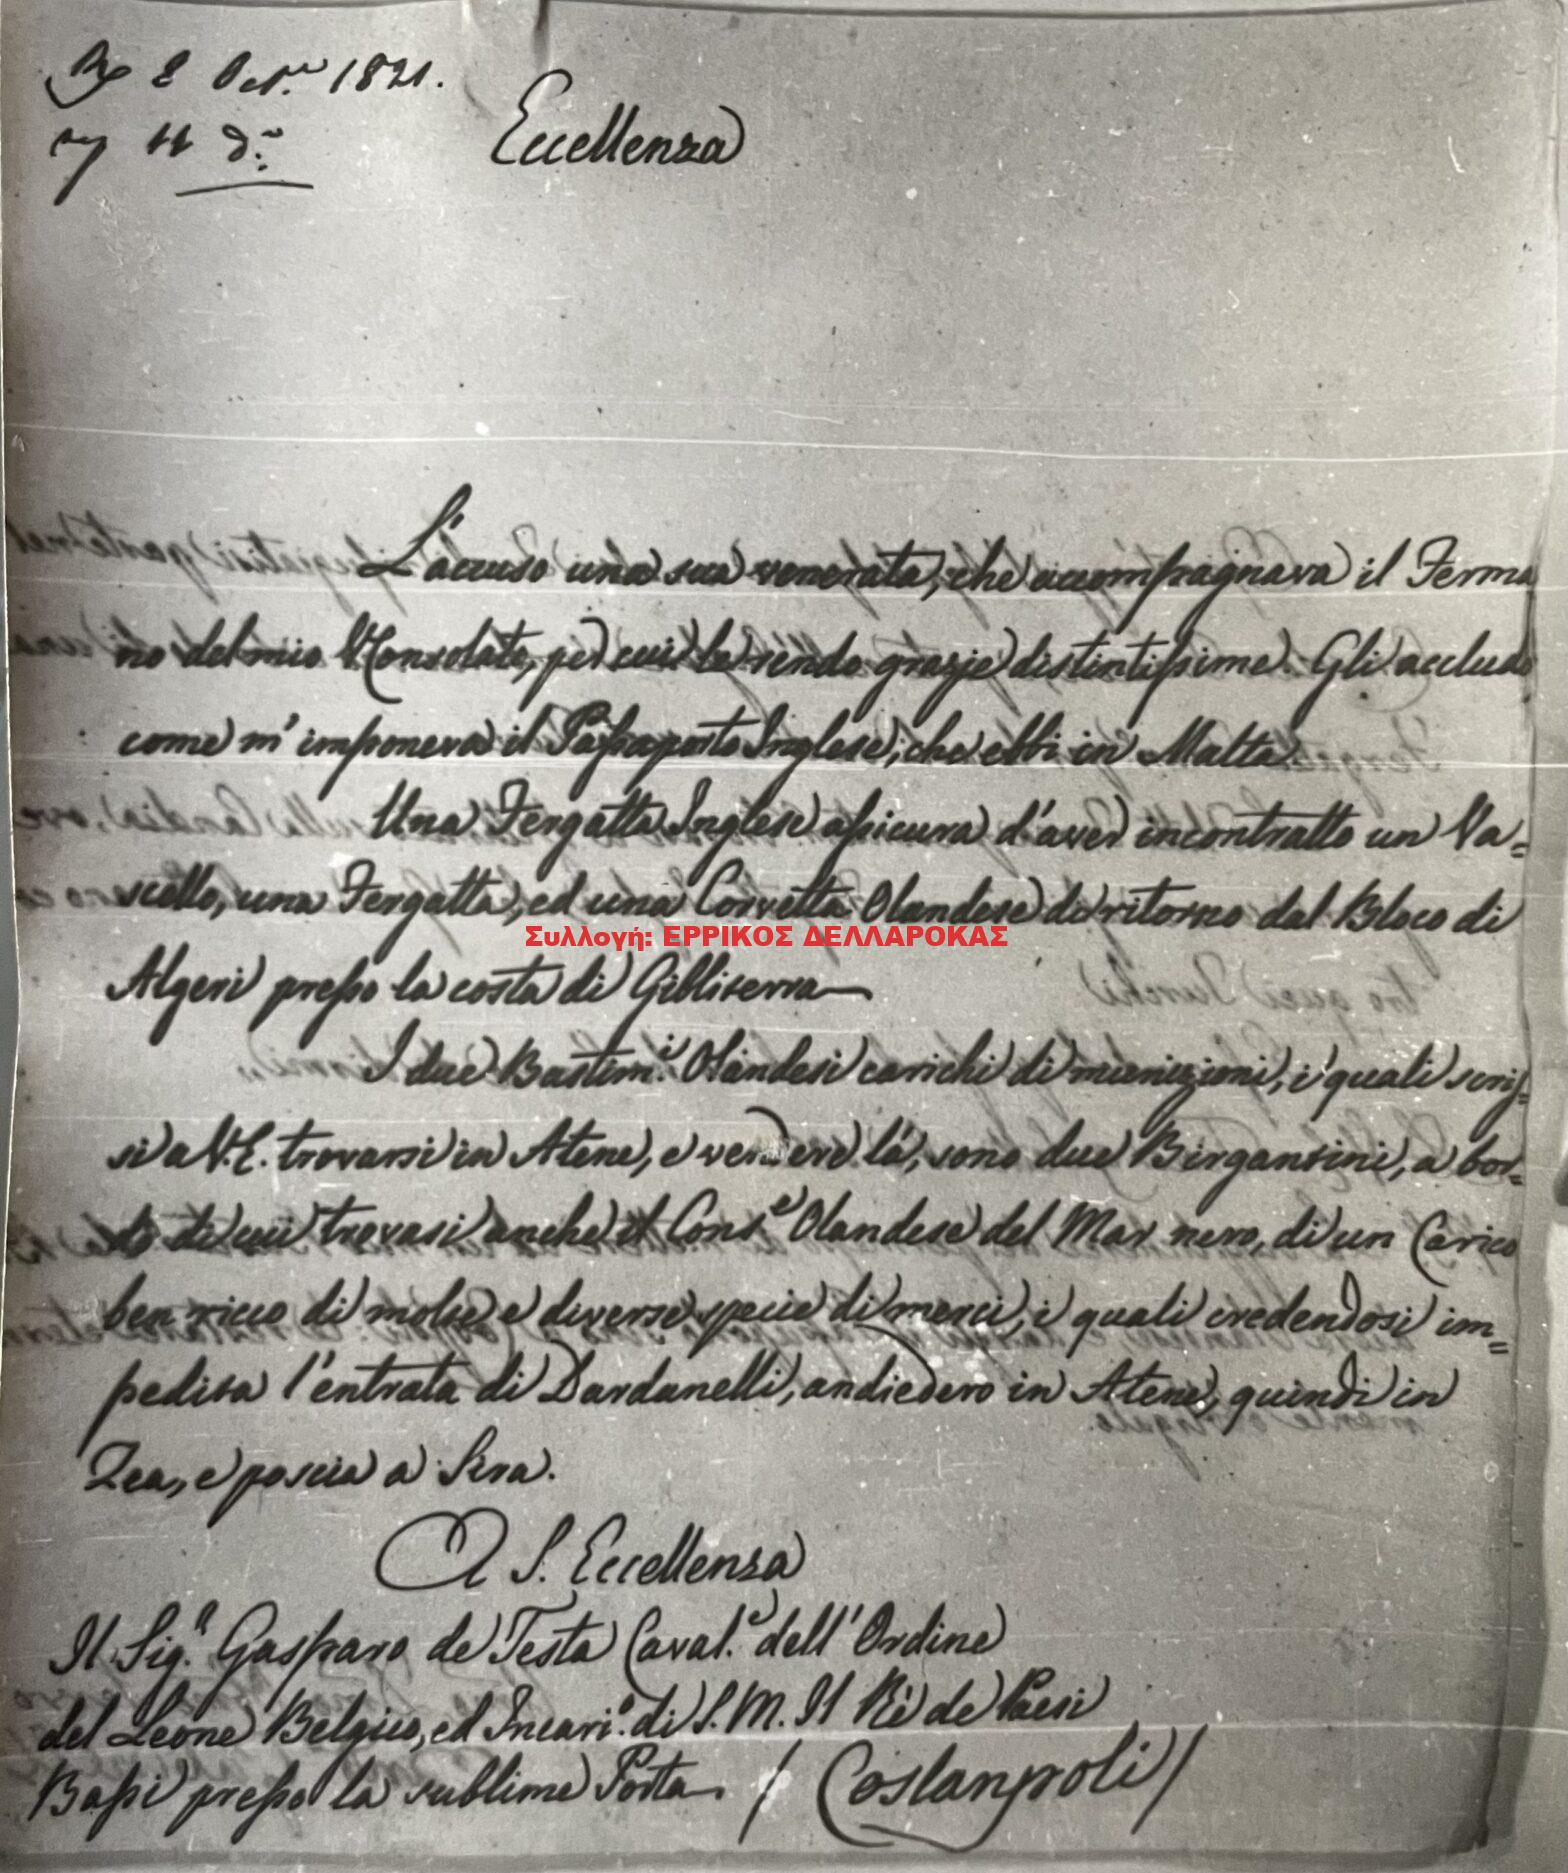 8 Oct. 1821.
Eccellenza
L'accuso una sua venerata, che accompagnava il Ferma
no del mio V Consolato, per cui le rendo grazie distintissime. Gli accludo
come m'imponeva il Passaporto Inglese, che ebbi in Malta.
Una Fergatta Inglese assicura d'aver incontratto un Va=
scello, una Fergatta, ed una Corvetta Olandese di ritorno dal Bloco di
Συλλογή: ΕΡΡΙΚΟΣ ΔΕΛΛΑΡΟΚΑΣ
Algeri presso la costa di Gibliterra
I due Bastim.i Olandesi carichi di munizioni, i quali scris=
si a V.E. trovarsi in Atene, e vendere là, sono due Birgantini, a bor=
do di cui trovasi anche il Cons.e Olandese del Mar nero, di un Carico
ben ricco di molte e diverse specie di merci, i quali credendosi im=
pedita l'entrata di Dardanelli, andiedero in Atene, quindi in
Zea, e poscia a Sira.
A S. Eccellenza
Il Sig.r Gasparo de Testa Caval.e dell'Ordine
del Leone Belgico, ed Incari.o di S. M. Il Rè de Paesi
Bassi presso la sublime Porta / Costanpoli /